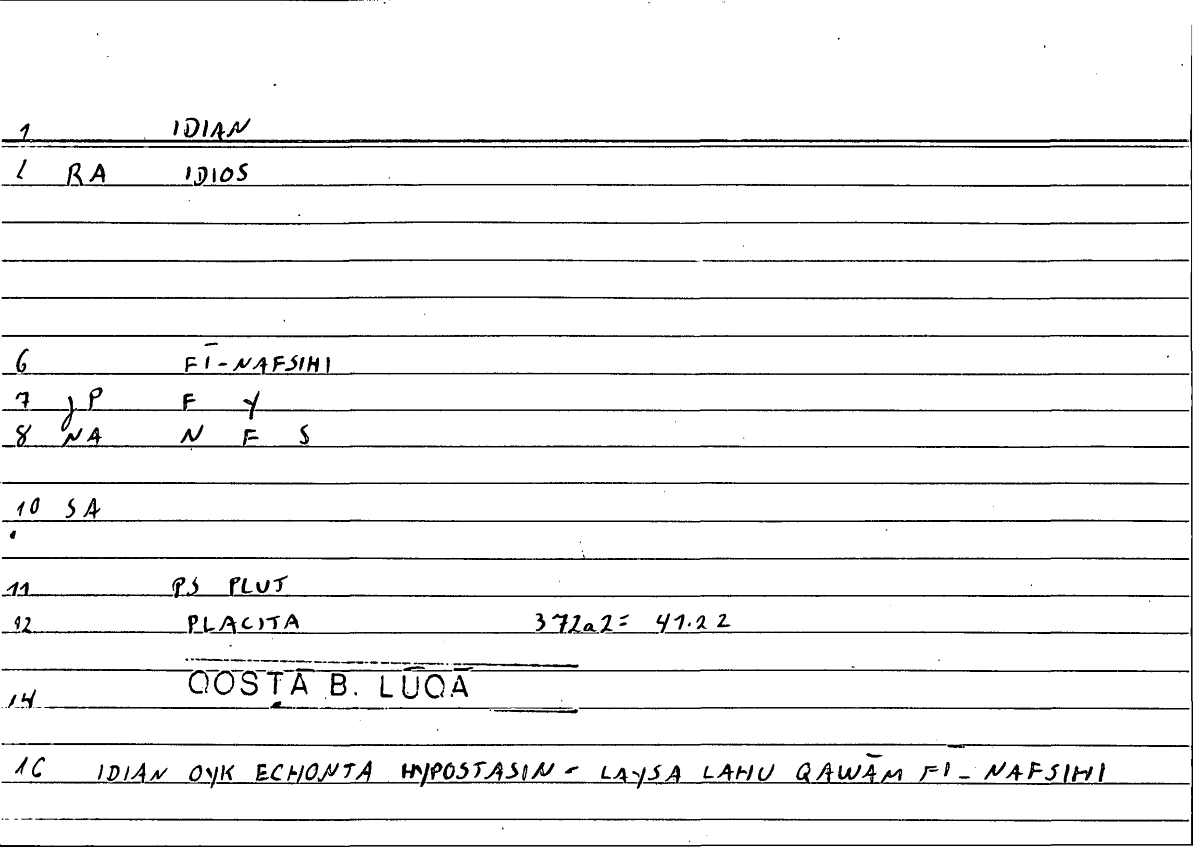 1 IDIAN
2 RA IDIOS
6 FĪ-NAFSIHI
7 JP F Y
8 NA N F S
10 SA
11 PS PLUT
12 PLACITA 372a2= 41.22
14 QOSṬĀ B. LŪQĀ
16 IDIAN OYK ECHONTA HYPOSTASIN = LAYSA LAHU QAWĀM FĪ-NAFSIHI